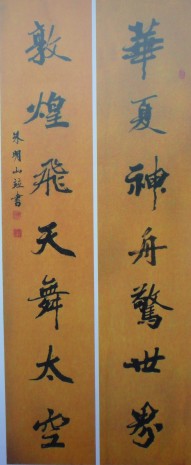 華夏神舟驚世界
敦煌飛天舞太空
朱明山拉書